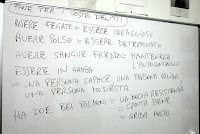 AVERE FEGATO = ESSERE CORAGGIOSO
AVERE POLSO = ESSERE DETERMINATO
AVERE SANGUE FREDDO = MANTENERE L'AUTOCONTROLLO
ESSERE IN GAMBA
= UNA PERSONA CAPACE, UNA PERSONA VALIDA
= UNA PERSONA MODESTA
HA DUE BEI POLMONI = HA MOLTA RESISTENZA
= CANTA BENE
= GRIDA MOLTO